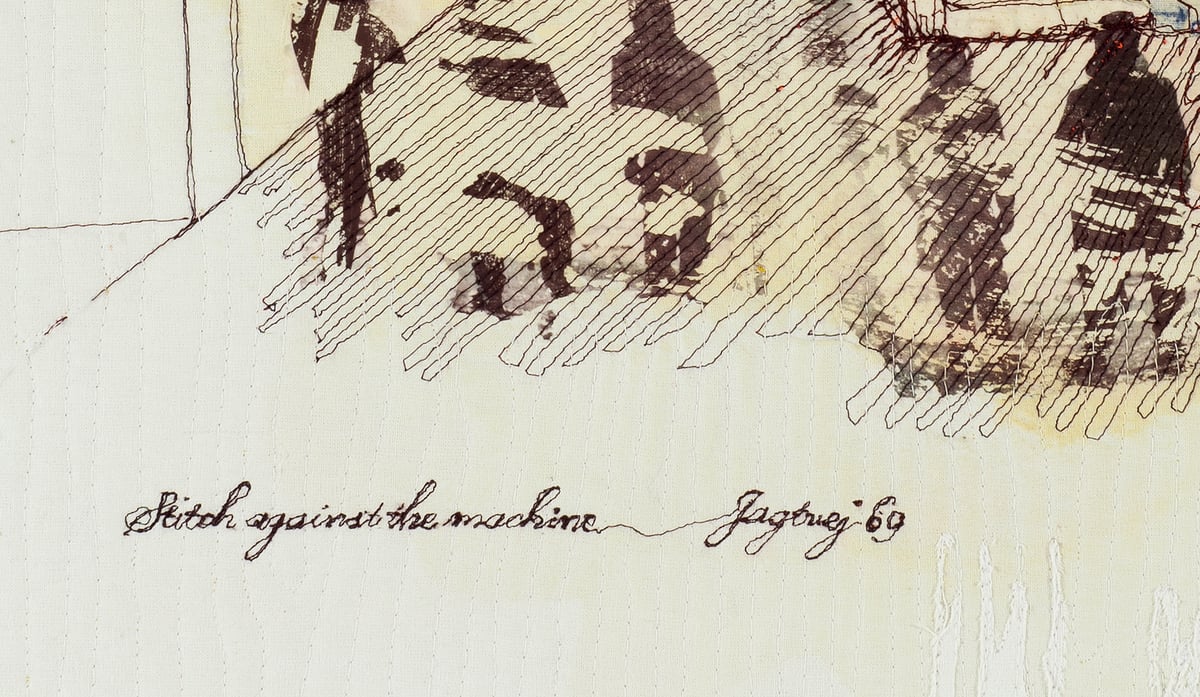 Stitch against the machine Jagtvej 69